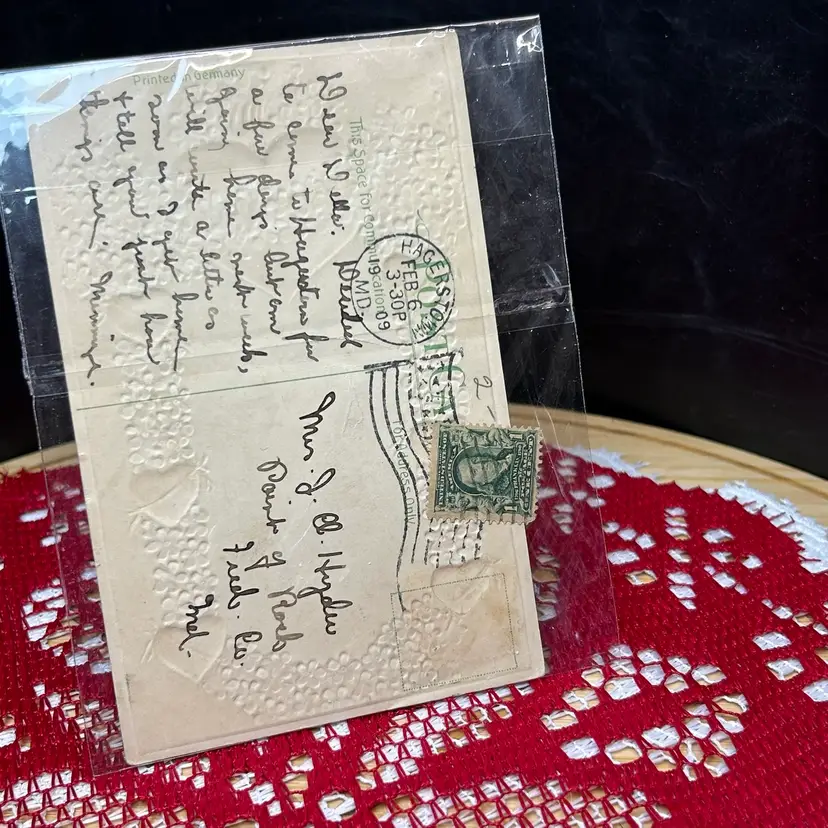 Printed in Germany
This Space for Communication
Dear Della. Decided
to come to Hagerstown for
a few days. But am
going home next week,
will write a letter as
soon as I get home
& tell you just how
things are. Minnie.
HAGERSTOWN
FEB 6
3-30P
1909
MD.
POSTCARD
For Address Only
2-
Mrs. J. A. Hyder
Point of Rocks
Fred. Co.
Md.
1 1